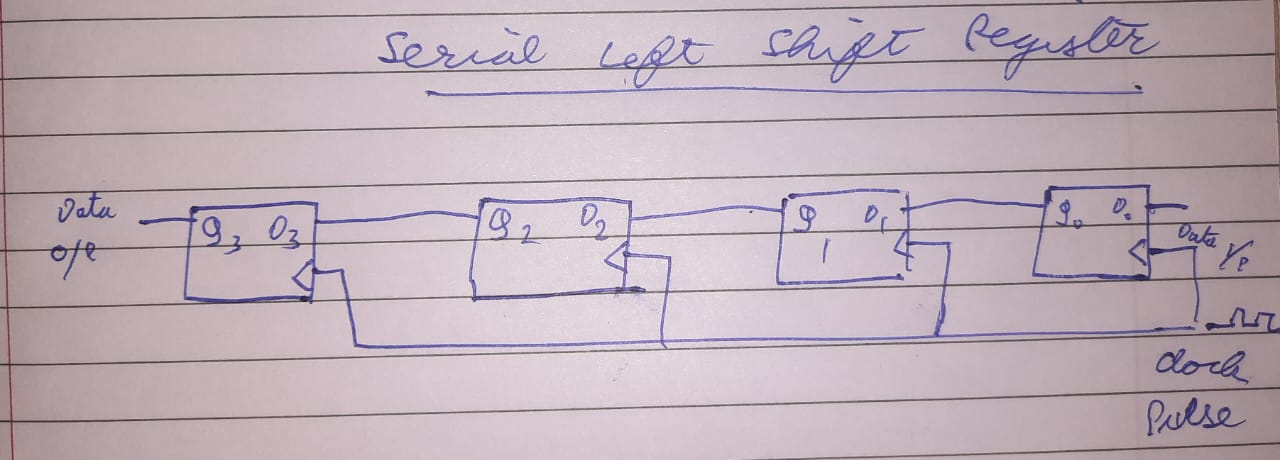 Serial Left Shift Register
Data
O/P
Q3 D3
Q2 D2
Q1 D1
Q0 D0
Data I/P
Clock
Pulse